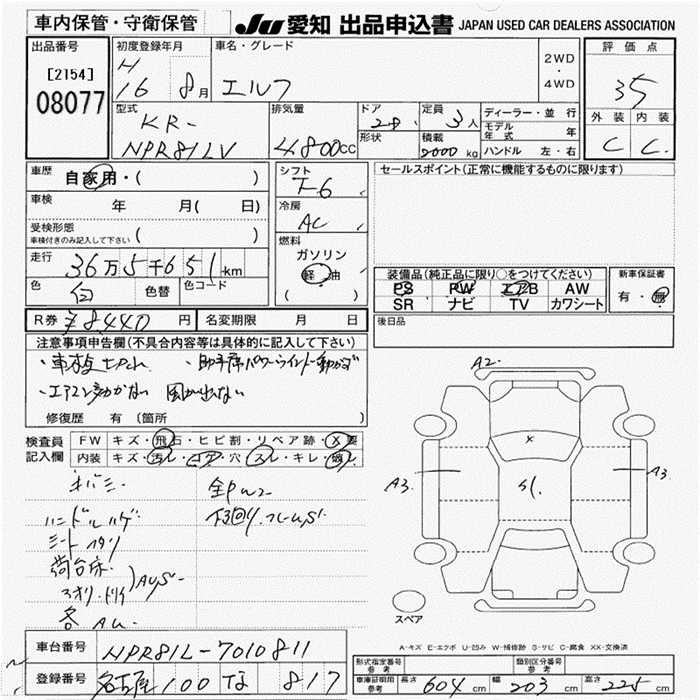 車内保管・守衛保管
JU 愛知 出品申込書 JAPAN USED CAR DEALERS ASSOCIATION
出品番号
[2154]
08077
初度登録年月
H
16 8月
車名・グレード
エルフ
2WD
・
4WD
評価点
35
外装 内装
C C
型式
KR-
NPR81LV
排気量
4800cc
ドア
形状
定員
3人
積載
2000kg
ディーラー・並行
モデル年式 年
ハンドル 左・右
車歴
自家用・( )
車検
年 月( 日)
受検形態
車検付きのみ記入して下さい
・( )
走行
36万5千651km
色
白
色替
色コード
シフト
F6
冷房
AC
燃料
ガソリン
軽・油
( )
セールスポイント(正常に機能するものに限ります)
装備品(純正品に限り○をつけてください)
PS PW エアB AW
SR ナビ TV カワシート
新車保証書
有・無
R券 ¥8440円 名変期限 月 日
後日品
注意事項申告欄(不具合内容等は具体的に記入して下さい)
・助手席パワーウインドー動かず
・エアコン効かない 風が出ない
修復歴 有(箇所 )
検査員
記入欄
FW キズ・飛石・ヒビ割・リペア跡・X要
内装 キズ・汚レ・コゲ・穴・スレ・キレ・破レ
ハンドルハゲ
シートヘタリ
荷台床
アオリ・トリイ
AUS
各AU
下回り.フレームS
A2
X
A3
S1
A3
スペア
A-キズ E-エクボ U-凹み W-補修跡 S-サビ C-腐食 XX-交換済
車台番号 NPR81L-7010811
登録番号 名古屋 100 な 817
形式指定番号
参考
類別区分番号
参考
車庫証明
参考
長さ 604cm 幅 203cm 高さ 225cm